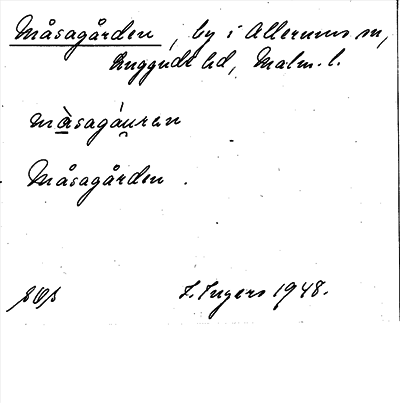 Måsagården, by i Allerums sn,
Luggude hd, Malm. l.
màsagáuren
Måsagården.
I. Ingers 1948.